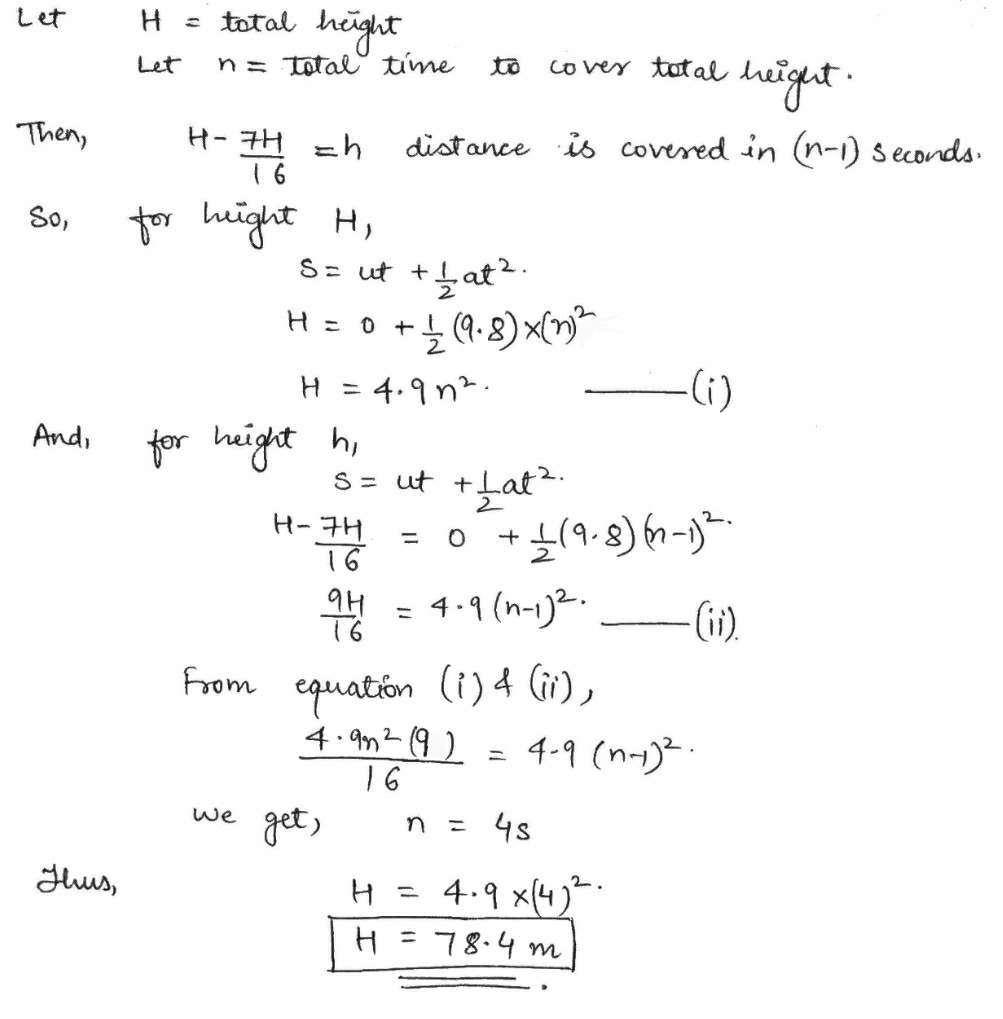 Let H = total height
Let n = total time to cover total height.
Then, H - 7H/16 = h distance is covered in (n-1) seconds.
So, for height H,
S = ut + 1/2 at².
H = 0 + 1/2 (9.8) × (n)²
H = 4.9n². ——(i)
And, for height h,
S = ut + 1/2 at².
H - 7H/16 = 0 + 1/2 (9.8) (n-1)².
9H/16 = 4.9 (n-1)². ——(ii).
From equation (i) & (ii),
4.9n² (9)/16 = 4.9 (n-1)².
We get, n = 4s
Thus, H = 4.9 × (4)².
H = 78.4 m